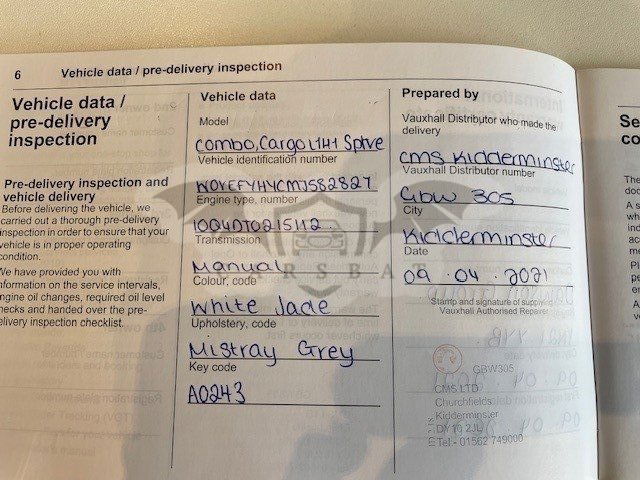 6 Vehicle data / pre-delivery inspection
Vehicle data /
pre-delivery
inspection
Pre-delivery inspection and
vehicle delivery
Before delivering the vehicle, we
carried out a thorough pre-delivery
inspection in order to ensure that your
vehicle is in proper operating
condition.
We have provided you with
information on the service intervals,
engine oil changes, required oil level
checks and handed over the pre-
delivery inspection checklist.
Vehicle data
Model
Combo, Cargo L1H1 Sptve
Vehicle identification number
W0VEFYHYCMJ582827
Engine type, number
10Q4DT0215112
Transmission
Manual
Colour, code
White Jade
Upholstery, code
Mistray Grey
Key code
A0243
Prepared by
Vauxhall Distributor who made the
delivery
CMS Kidderminster
Vauxhall Distributor number
GBW 305
City
Kidderminster
Date
09.04.2021
Stamp and signature of supplying
Vauxhall Authorised Repairer
GBW305
CMS LTD
Churchfields
Kidderminster
DY10 2JL
Tel:- 01562 749000
CARSBAT